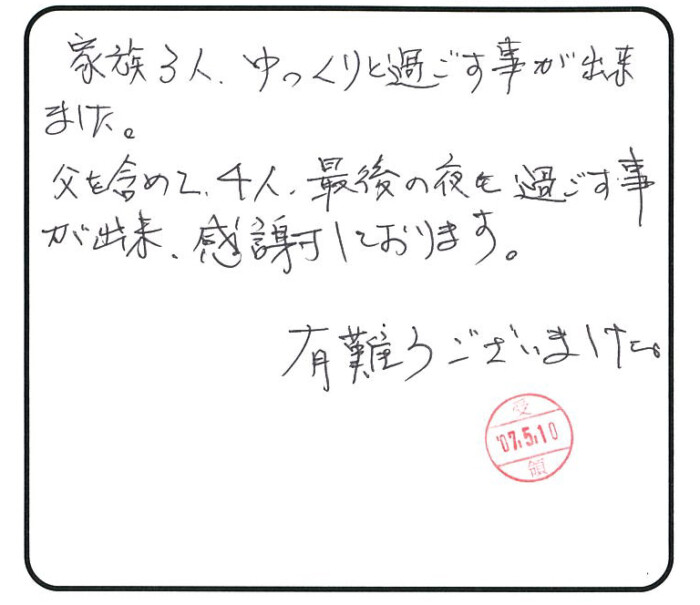 家族3人、ゆっくりと過ごす事が出来
ました。
父を含めて、4人、最後の夜を過ごす事
が出来、感謝しております。
有難うございました。
受
'07.5.10
領